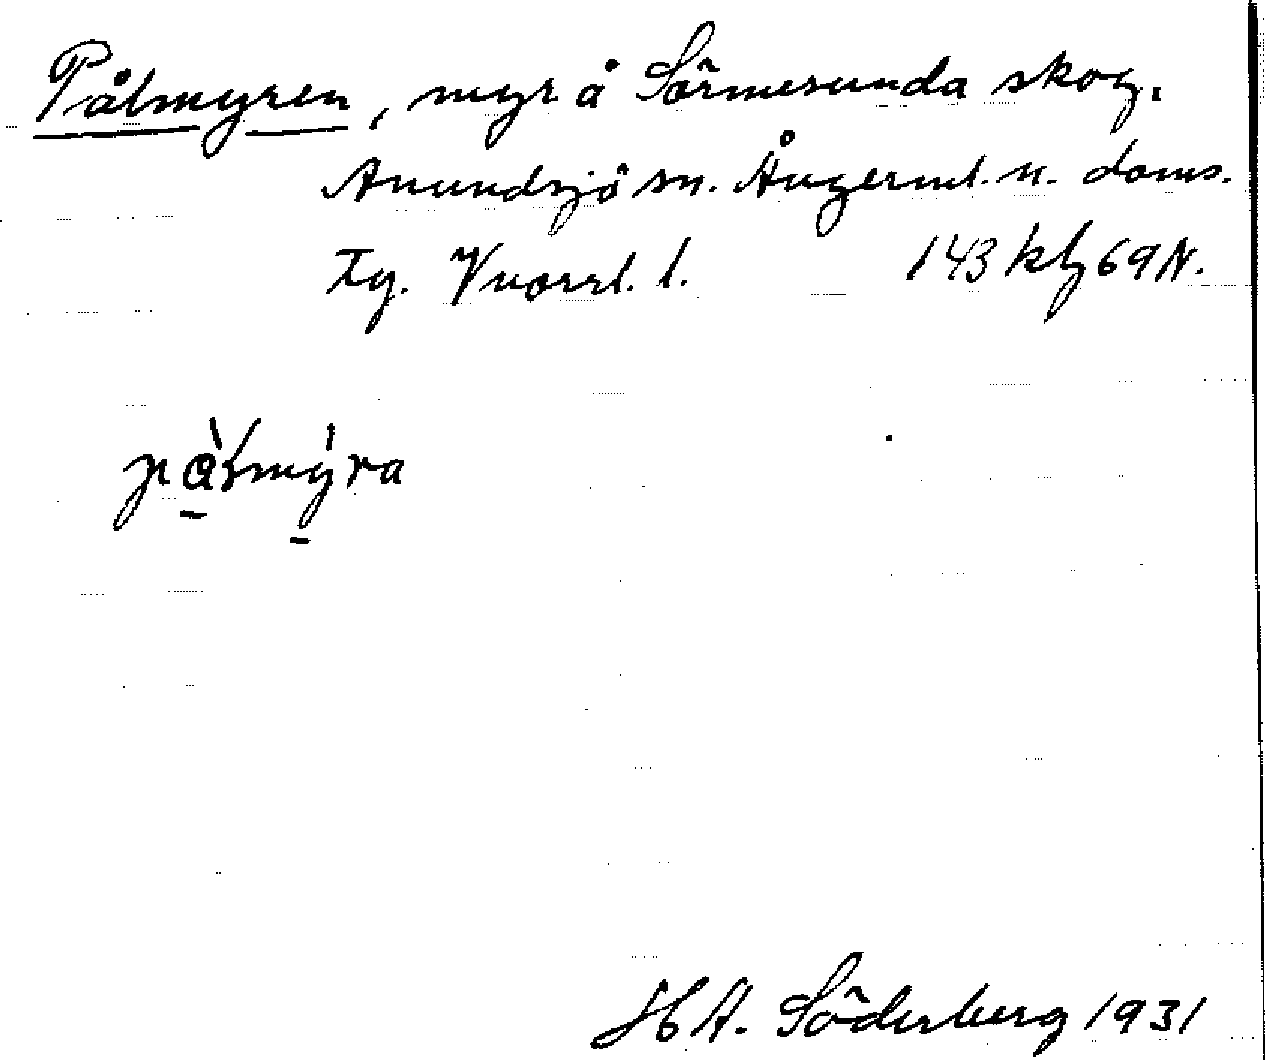 Pålmyren, myr å Sörmesunda skog.
Anundsjö sn. Ångerml. n. doms.
Tg. Vuorrl. l. 143 kb 69 N.
H A. Söderberg 1931